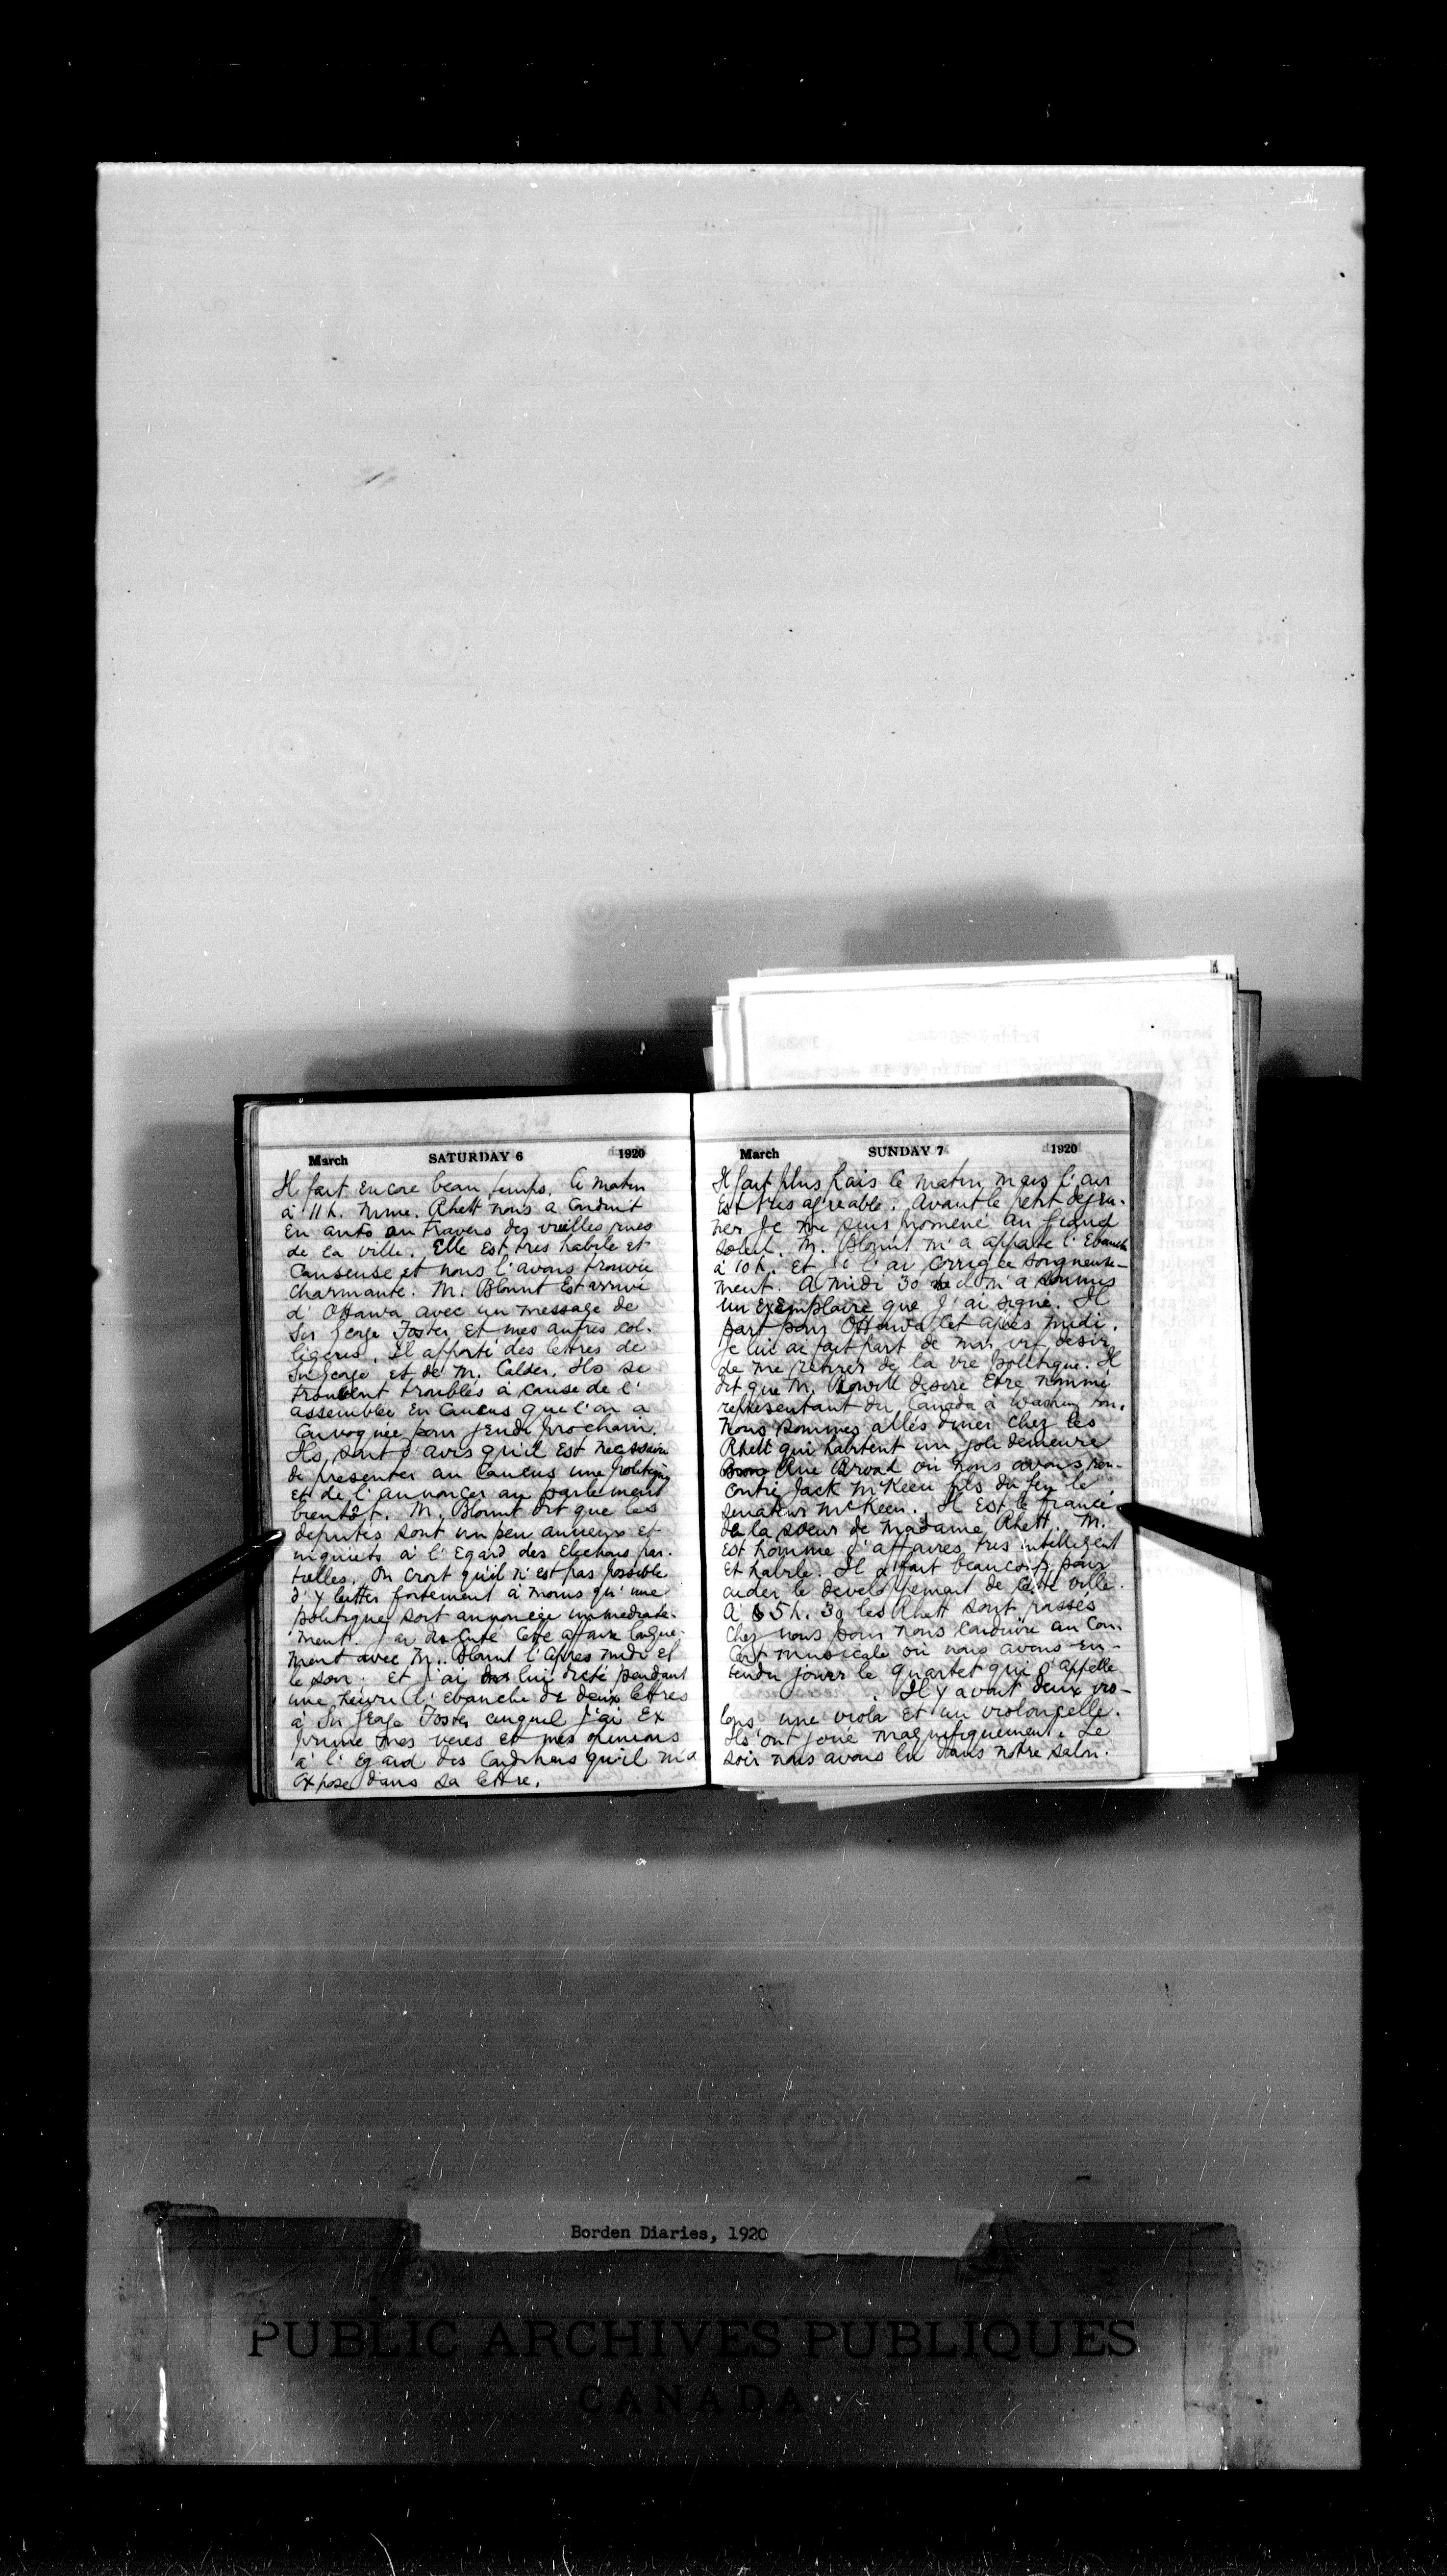 March SATURDAY 6 1920
Il fait encore beau temps. Le matin
à 11 h. Mme. Rhett nous a conduit
en auto au travers des vieilles rues
de la ville. Elle est tres habile et
causeuse et nous l'avons trouvée
charmante. M. Blount est arrivé
d'Ottawa avec un message de
Sir George Foster et mes autres col-
legues. Il apporté des lettres de
Sir George et de M. Calder. Ils se
trouvent troublés à cause de l'
assemblée en caucus que l'on a
convoquée pour jeudi prochain.
Ils sont d'avis qu'il est necessaire
de presenter au caucus une politique
et de l'annoncer au parlement
bientôt. M. Blount dit que les
deputés sont un peu anneux et
inquiets à l'egard des elections par-
tielles. On croit qu'il n'est pas possible
d'y lutter fortement à moins qu'une
politique soit annoncée immediate-
ment. J'ai discuté cette affaire longue-
ment avec M. Blount l'apres midi et
le soir. et j'ai lui dicté pendant
une heure l'ebauche de deux lettres
à Sir George Foster auquel j'ai ex
primé mes vues et mes opinions
à l'egard des conditions qu'il m'a
exposé dans sa lettre.
March SUNDAY 7 1920
Il fait plus frais le matin mais l'air
est tres agreable. Avant le petit dejeu-
ner je me suis promené au grand
soleil. M. Blount m'a apporté l'ebauche
à 10 h. et je l'ai corrigée soigneuse-
ment. A midi 30 il m'a soumis
un exemplaire que j'ai signé. Il
part pour Ottawa cet apres midi.
Je lui ai fait part de mon vif desir
de me retirer de la vie politique. Il
dit que M. Rowell desire etre nommé
representant du Canada à Washington.
Nous sommes allés diner chez les
Rhett qui habitent un jole demeure
Rue Broad ou nous avons ren-
contré Jack McKeen fils du feu le
senateur McKeen. Il est le fiancé
de la soeur de Madame Rhett. M.
est homme d'affaires tres intelligent
et habile. Il a fait beaucoup pour
aider le developpement de cette ville.
A 5 h. 30 les Rhett sont passés
chez nous pour nous conduire au con-
cert musicale ou nous avons en-
tendu jouer le quartet qui s'appelle
. Il y avait deux vio-
lons une viola et un violoncelle.
Ils ont joué magnifiquement. Le
soir nous avons lu dans notre salon.
Borden Diaries, 1920
PUBLIC ARCHIVES PUBLIQUES
CANADA